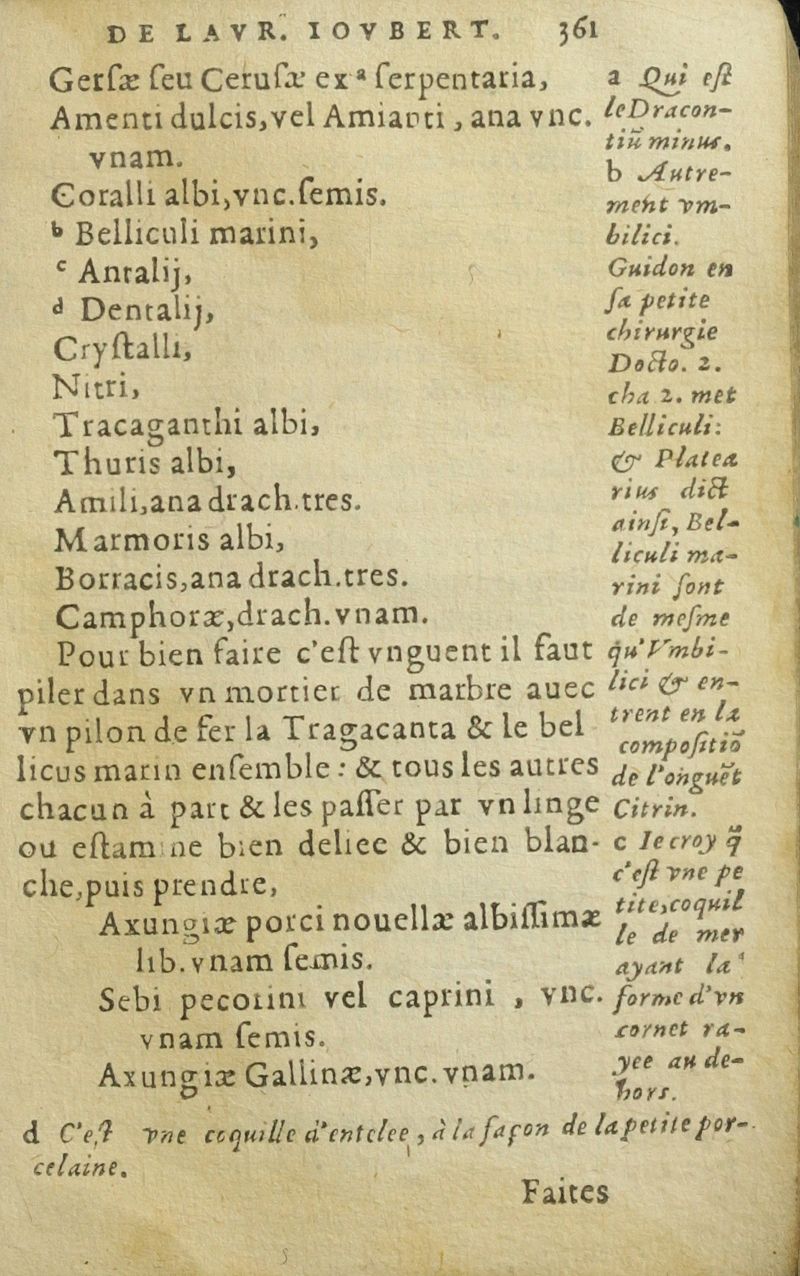 DE LAVR. IOVBERT. 361
Gersæ seu Cerusæ ex ᵃ serpentaria,
Amenti dulcis, vel Amianti, ana vnc.
vnam.
Coralli albi, vnc. semis.
ᵇ Belliculi marini,
ᶜ Antalij,
ᵈ Dentalij,
Crystalli,
Nitri,
Tracaganthi albi,
Thuris albi,
Amili, ana drach. tres.
Marmoris albi,
Borracis, ana drach. tres.
Camphoræ, drach. vnam.
Pour bien faire c'est vnguent il faut
piler dans vn mortier de marbre auec
vn pilon de fer la Tragacanta & le bel
licus marin ensemble : & tous les autres
chacun à part & les passer par vn linge
ou estamine bien deliee & bien blan-
che, puis prendre,
Axungiæ porci nouellæ albissimæ
lib. vnam semis.
Sebi pecorini vel caprini , vnc.
vnam semis.
Axungiæ Gallinæ, vnc. vnam.
a Qui est
le Dracon-
tiū minus.
b Autre-
ment vm-
bilici.
Guidon en
sa petite
chirurgie
Docto. 2.
cha 2. met
Belliculi:
& Platea
rius dict
ainsi, Bel-
liculi ma-
rini sont
de mesme
qu'Vmbi-
lici & en-
trent en la
compositiō
de l'onguēt
Citrin.
c Ie croy q̃
c'est vne pe
tite, coquil
le de mer
ayant la
forme d'vn
cornet ra-
yee au de-
hors.
d C'est vne coquille d'entelee, à la façon de la petite por-
celaine.
Faites